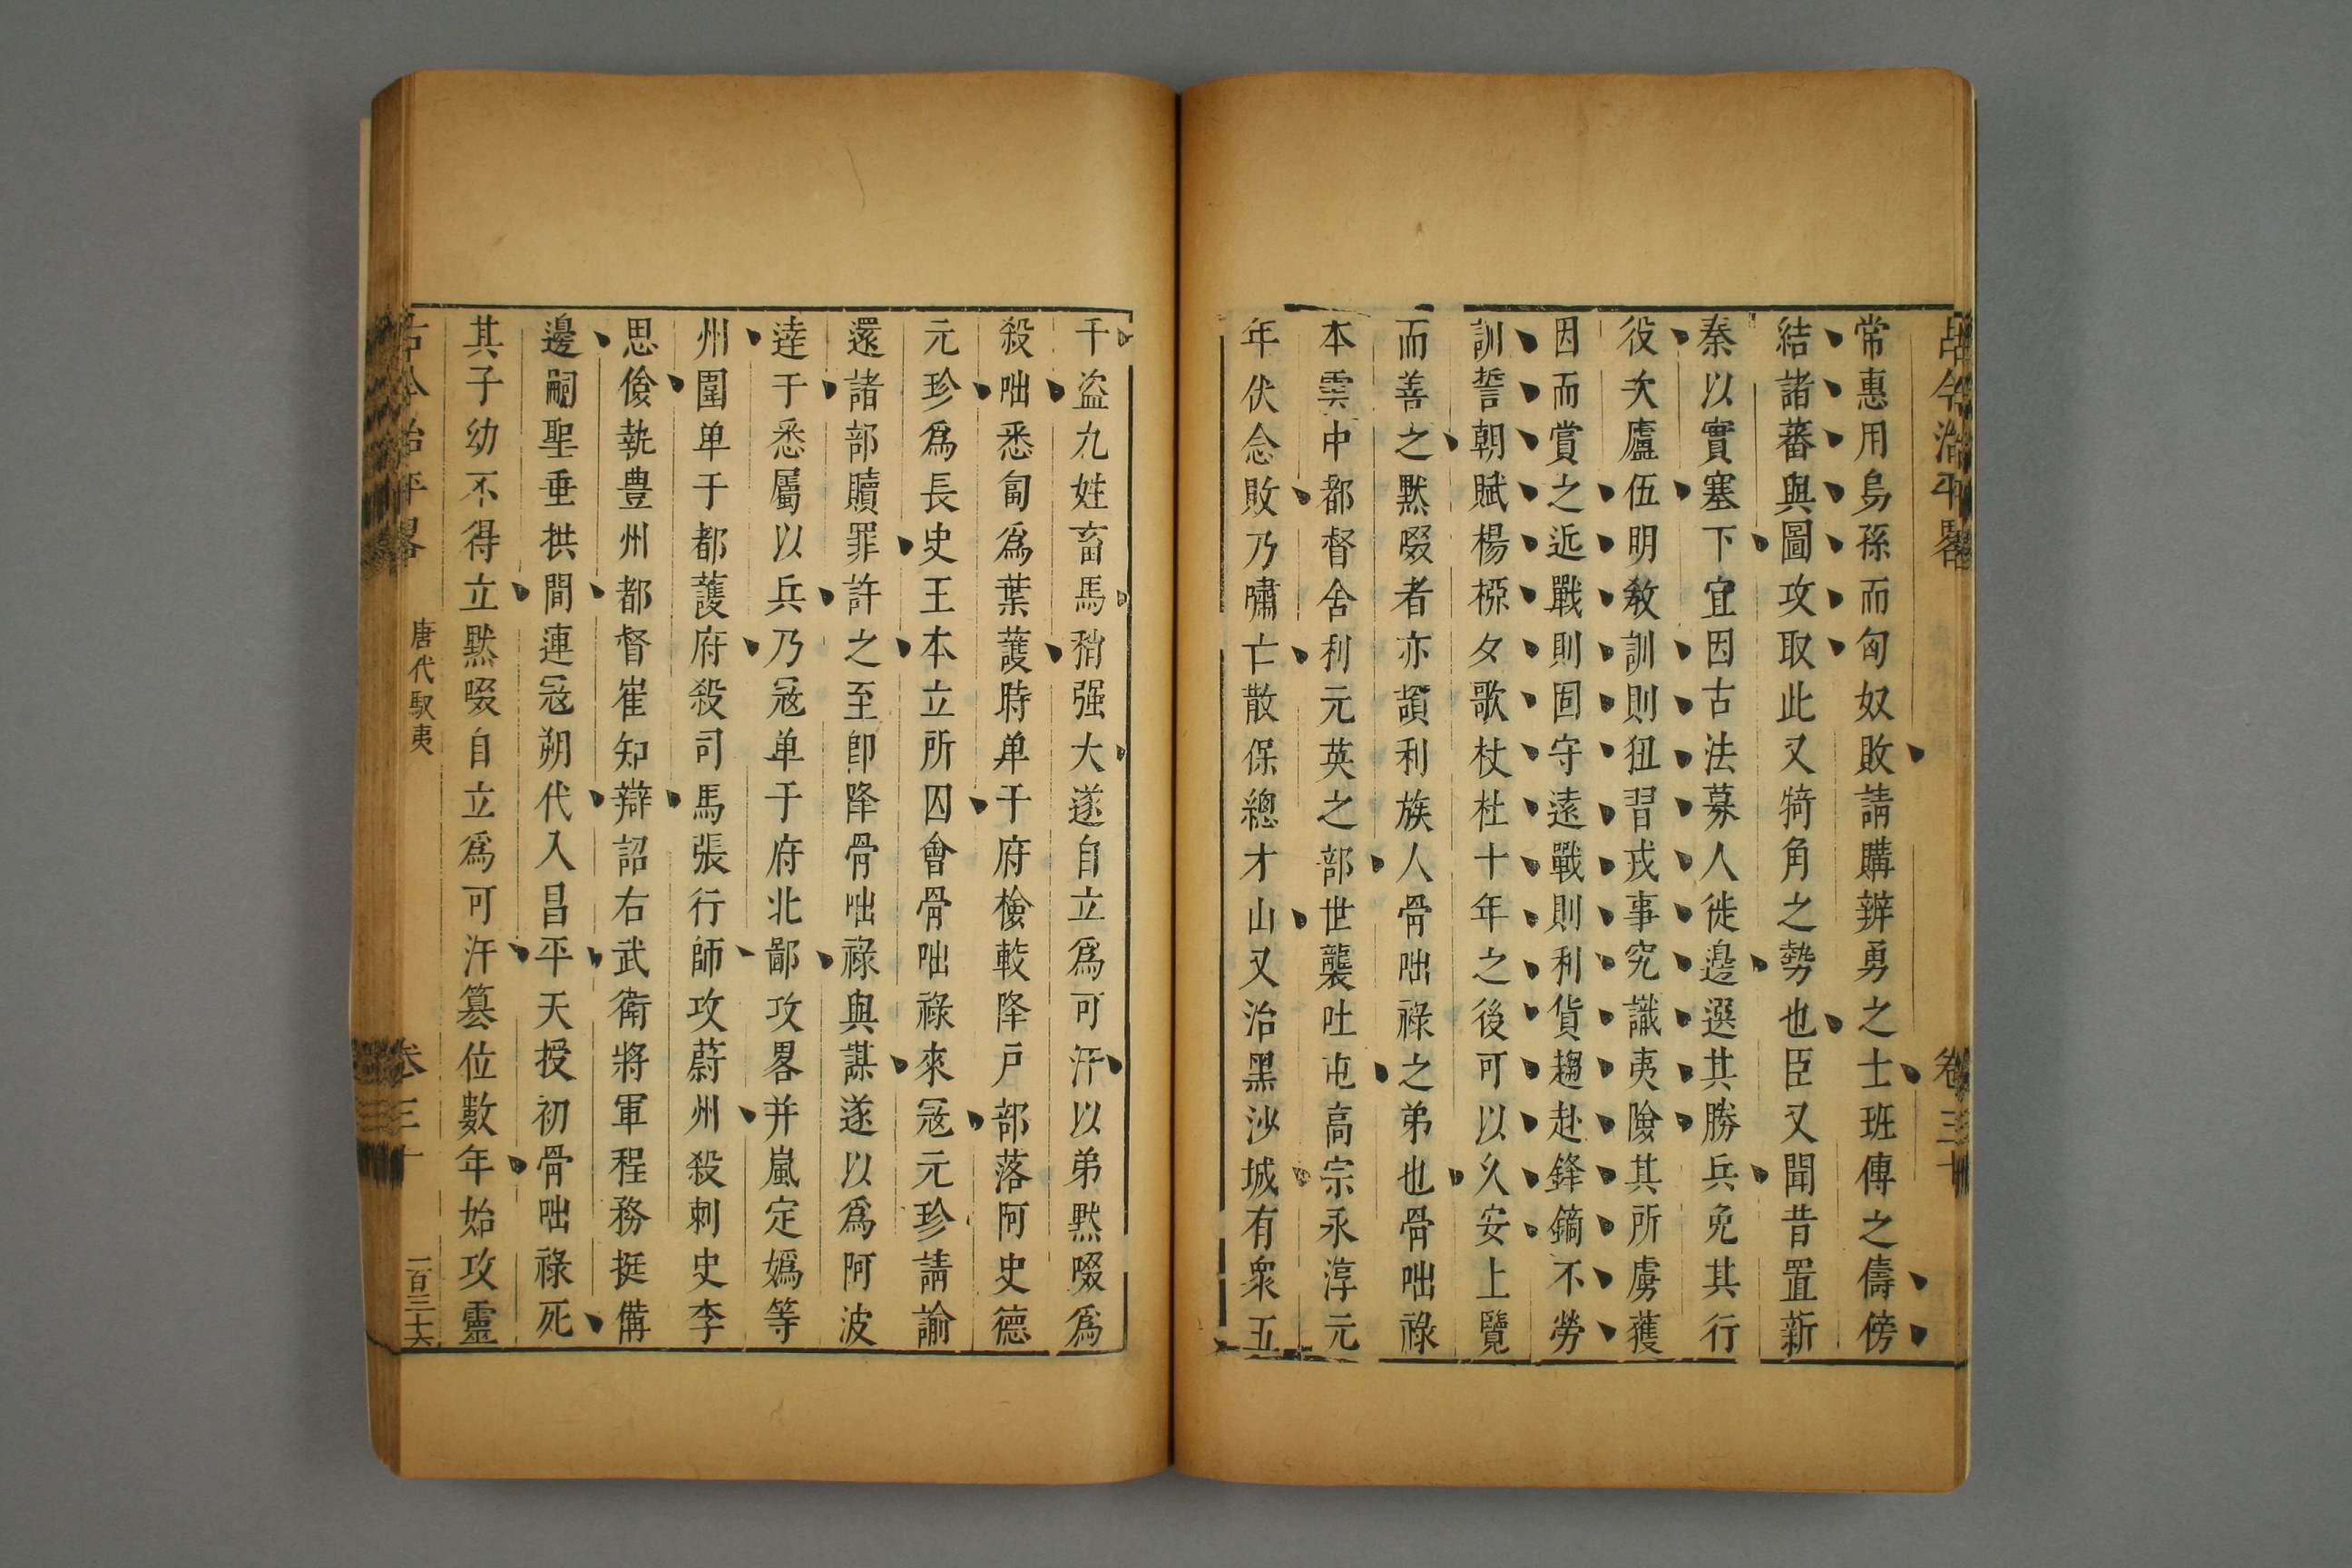 古今治平畧 卷三十
常惠用烏孫而匈奴敗請購辨勇之士班傳之儔傍
結諸蕃與圖攻取此又犄角之勢也臣又聞昔置新
秦以實塞下宜因古法募人徙邊選其勝兵免其行
役次廬伍明敎訓則狃習戎事究識夷險其所虜獲
因而賞之近戰則固守遠戰則利貨趨赴鋒鏑不勞
訓誓朝賦楊桞夕歌杕杜十年之後可以久安上覽
而善之默啜者亦頡利族人骨咄祿之弟也骨咄祿
本雲中都督舍利元英之部世襲吐屯高宗永淳元
年伏念敗乃嘯亡散保總才山又治黑沙城有衆五
千盗九姓畜馬稍强大遂自立爲可汗以弟默啜爲
殺咄悉匐爲葉護時单于府檢較降戸部落阿史德
元珍爲長史王本立所囚會骨咄祿來冦元珍請諭
還諸部贖罪許之至卽降骨咄祿與謀遂以爲阿波
達于悉屬以兵乃冦单于府北鄙攻畧并嵐定媯等
州圍单于都護府殺司馬張行師攻蔚州殺刺史李
思儉執豊州都督崔知辯詔右武衛將軍程務挺備
邊嗣聖垂拱間連冦朔代入昌平天授初骨咄祿死
其子幼不得立默啜自立爲可汗簒位數年始攻靈
古今治平畧 唐代馭夷 卷三十 一百三十六